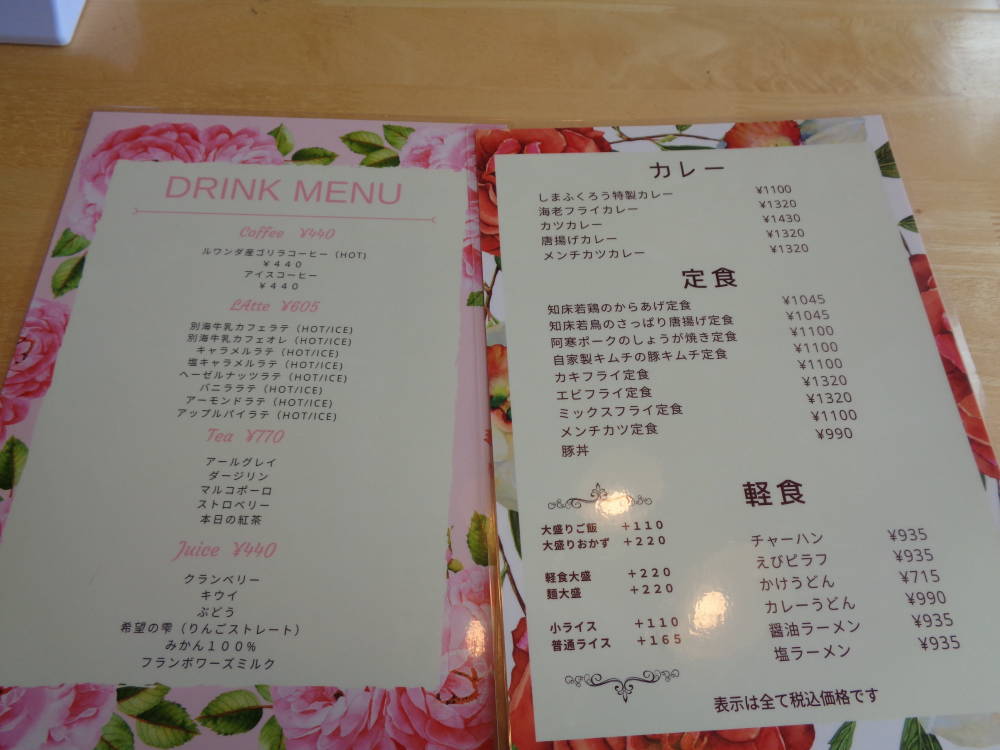 DRINK MENU
Coffee ¥440
ルワンダ産ゴリラコーヒー（HOT）
￥４４０
アイスコーヒー
￥４４０
LAtte ¥605
別海牛乳カフェラテ（HOT/ICE)
別海牛乳カフェオレ（HOT/ICE)
キャラメルラテ（HOT/ICE)
塩キャラメルラテ（HOT/ICE)
ヘーゼルナッツラテ（HOT/ICE)
バニララテ（HOT/ICE)
アーモンドラテ（HOT/ICE)
アップルパイラテ（HOT/ICE)
Tea ¥770
アールグレイ
ダージリン
マルコポーロ
ストロベリー
本日の紅茶
Juice ¥440
クランベリー
キウイ
ぶどう
希望の雫（りんごストレート）
みかん１００％
フランボワーズミルク
カレー
しまふくろう特製カレー ¥1100
海老フライカレー ¥1320
カツカレー ¥1430
唐揚げカレー ¥1320
メンチカツカレー ¥1320
定食
知床若鶏のからあげ定食 ¥1045
知床若鳥のさっぱり唐揚げ定食 ¥1045
阿寒ポークのしょうが焼き定食 ¥1100
自家製キムチの豚キムチ定食 ¥1100
カキフライ定食 ¥1100
エビフライ定食 ¥1320
ミックスフライ定食 ¥1320
メンチカツ定食 ¥1100
豚丼 ¥990
大盛りご飯 ＋１１０
大盛りおかず ＋２２０
軽食大盛 ＋２２０
麺大盛 ＋２２０
小ライス ＋１１０
普通ライス ＋１６５
軽食
チャーハン ¥935
えびピラフ ¥935
かけうどん ¥715
カレーうどん ¥990
醤油ラーメン ¥935
塩ラーメン ¥935
表示は全て税込価格です